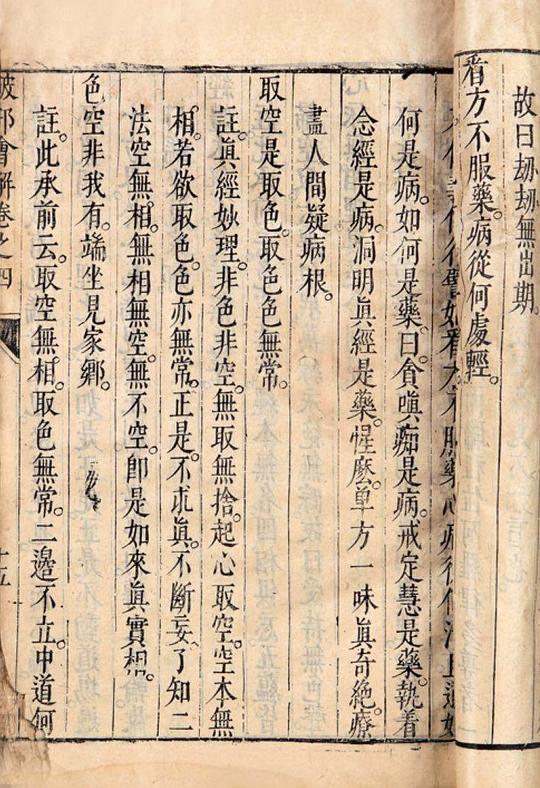 故曰刼刼無出期。
看方不服藥。病從何處輕。
何是病。如何是藥。曰貪嗔痴是病。戒定慧是藥。執着
念經是病。洞明眞經是藥。惺麽單方一味眞奇絶。療
盡人間疑病根。
取空是取色。取色色無常。
註。眞經妙理。非色非空。無取無捨。起心取空。空本無
相。若欲取色。色亦無常。正是。不求眞。不斷妄。了知二
法空無相。無相無空無不空。卽是如來眞實相。
色空非我有。端坐見家鄉。
註。此承前云。取空無相。取色無常。二邊不立。中道何
破邪會解卷之四
十五